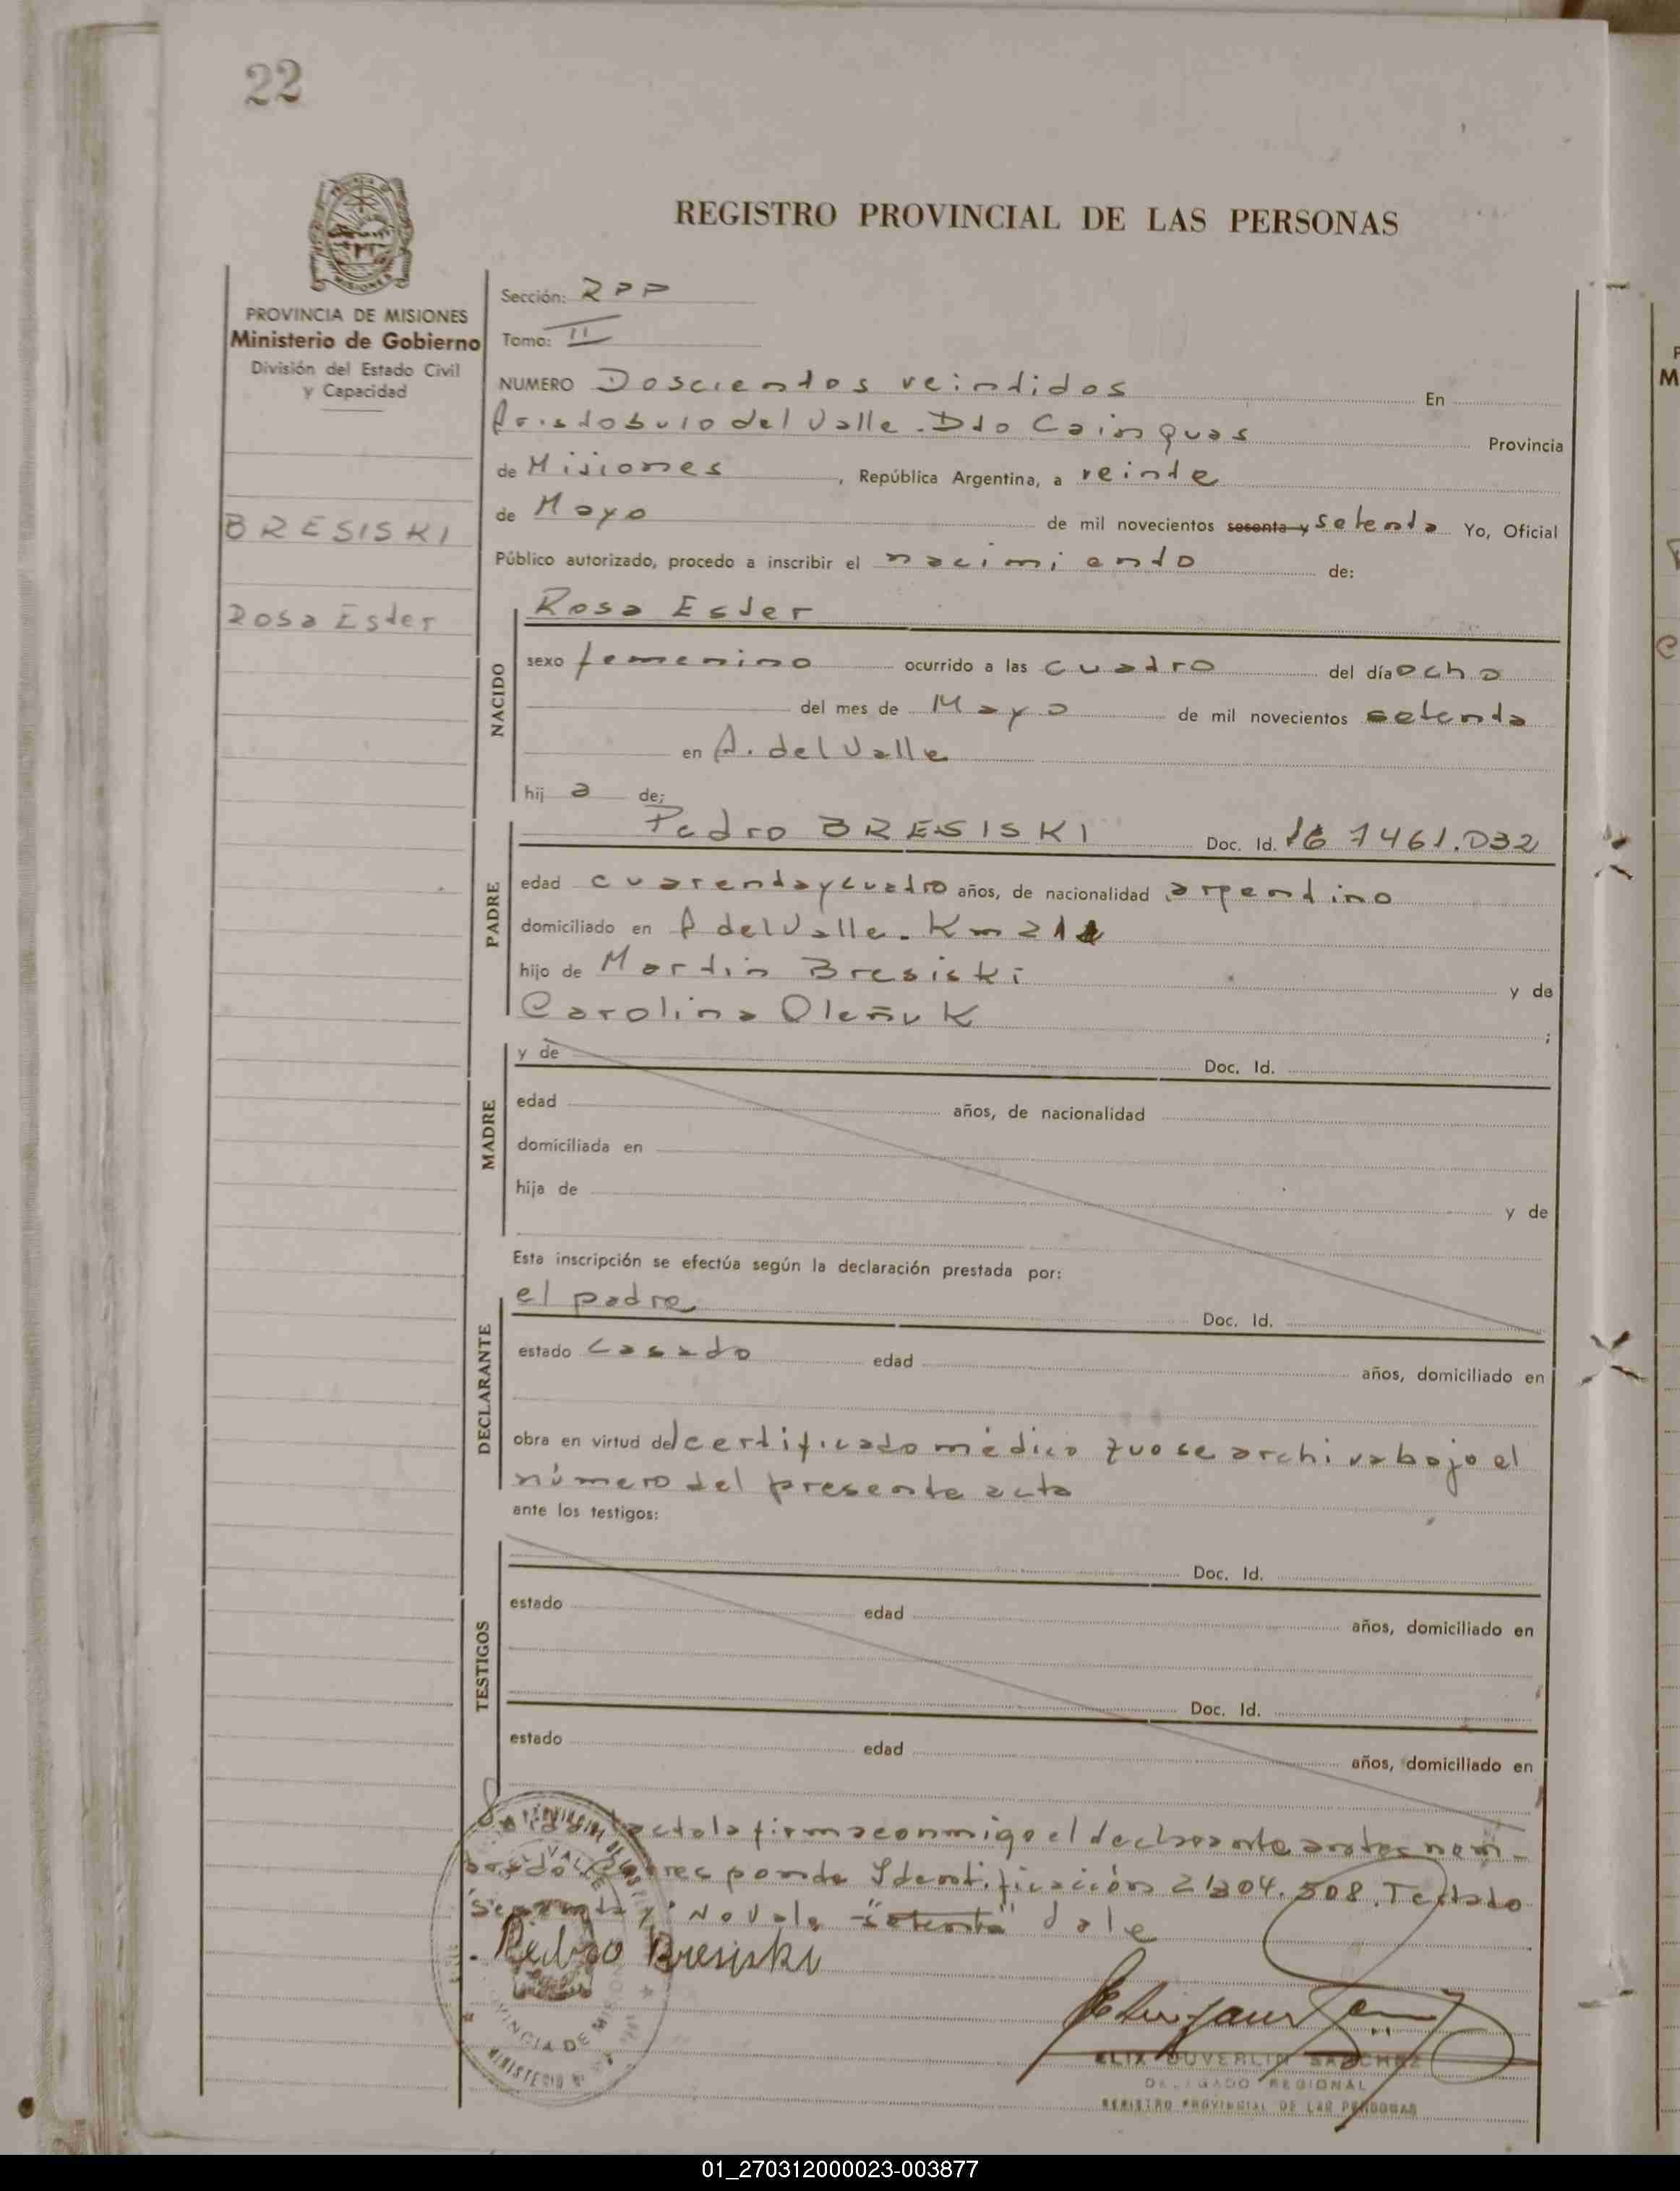 22
REGISTRO PROVINCIAL DE LAS PERSONAS
PROVINCIA DE MISIONES
Ministerio de Gobierno
División del Estado Civil
y Capacidad
BRESISKI
Rosa Ester
Sección: RPP
Tomo: II
NUMERO Doscientos veintidos En
Aristobulo del Valle. Dto Cainguas Provincia
de Misiones, República Argentina, a veinte
de Mayo de mil novecientos sesenta y setenta Yo, Oficial
Público autorizado, procedo a inscribir el nacimiento de:
Rosa Ester
NACIDO
sexo femenino ocurrido a las cuatro del día ocho
del mes de Mayo de mil novecientos setenta
en A. del Valle
hij a de:
Pedro BRESISKI Doc. Id. 7461.032
PADRE
edad cuarenta y cuatro años, de nacionalidad argentino
domiciliado en A del Valle. Km
hijo de Martin Bresiski y de
Carolina Oleñuk ;
MADRE
y de Doc. Id.
edad años, de nacionalidad
domiciliada en
hija de y de
Esta inscripción se efectúa según la declaración prestada por:
DECLARANTE
el padre Doc. Id.
estado casado edad años, domiciliado en
obra en virtud del certificado médico que se archiva bajo el
número del presente acta
ante los testigos:
TESTIGOS
Doc. Id.
estado edad años, domiciliado en
Doc. Id.
estado edad años, domiciliado en
acta la firma conmigo el declarante antes nom-
brado Corresponde Identificación 21304.508. Testado
y" No Vale "setenta" Vale
Pedro Bresiski
PROVINCIA DE MISIONES
MINISTERIO
ELIX DUVERLIN SANCHEZ
DELEGADO REGIONAL
REGISTRO PROVINCIAL DE LAS PERSONAS
01_270312000023-003877